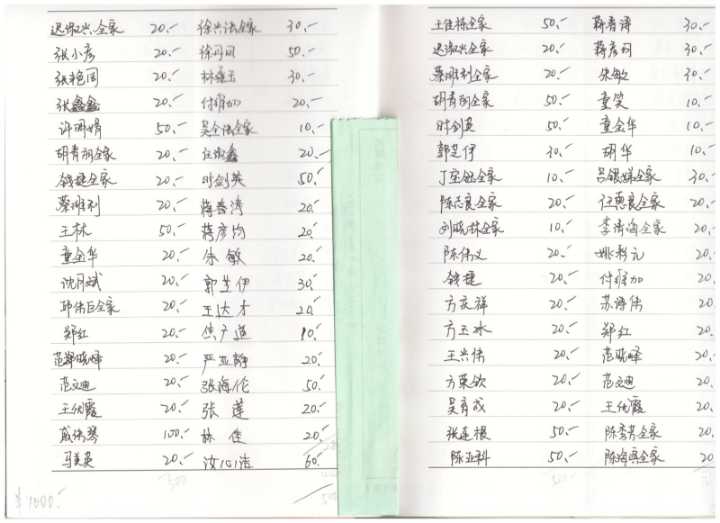 迟淑兴全家 20.- 徐兴法全家 30.-
张小彦 20.- 50.-
张艳园 20.- 30.-
张鑫鑫 20.- 20.-
许明娟 50.- 吴全法全家 10.-
胡青丽全家 20.- 20.-
钱捷全家 20.- 叶剑英 50.-
荣雅利 20.- 蒋春涛 20.-
王林 50.- 蒋彦均 20.-
童金华 20.- 朱敏 20.-
沈月斌 20.- 郭芝伊 30.-
邱伟巨全家 20.- 王达才 20.-
郑红 20.- 10.-
范晓峰 20.- 严亚静 20.-
范文迪 20.- 张海伦 50.-
王仙霞 20.- 张莲 20.-
戚伟琴 100.- 林佳 20.-
马美英 20.- 汝心洁 60.-
$1000.-
王佳栋全家 50.- 蒋春涛 30.-
迟淑兴全家 20.- 蒋彦均 30.-
荣雅利全家 20.- 朱敏 30.-
胡青丽全家 50.- 童笑 10.-
叶剑英 50.- 童金华 10.-
郭芝伊 30.- 胡华 10.-
丁宝娣全家 10.- 吕银娣全家 30.-
陈志良全家 20.- 任惠良全家 20.
刘晓林全家 10.- 李清海全家 20.
陈伟义 20.- 姚彩元 20.
钱捷 20.- 20.
方友祥 20.- 苏泽伟 20.
方玉冰 20.- 郑红 20.
王兴伟 20.- 范晓峰 20.
方荣钦 20.- 范文迪 20.
吴育成 20.- 王仙霞 20.
张连根 50.- 陈秀芳全家 20.
陈亚科 50.- 陈海燕全家 20